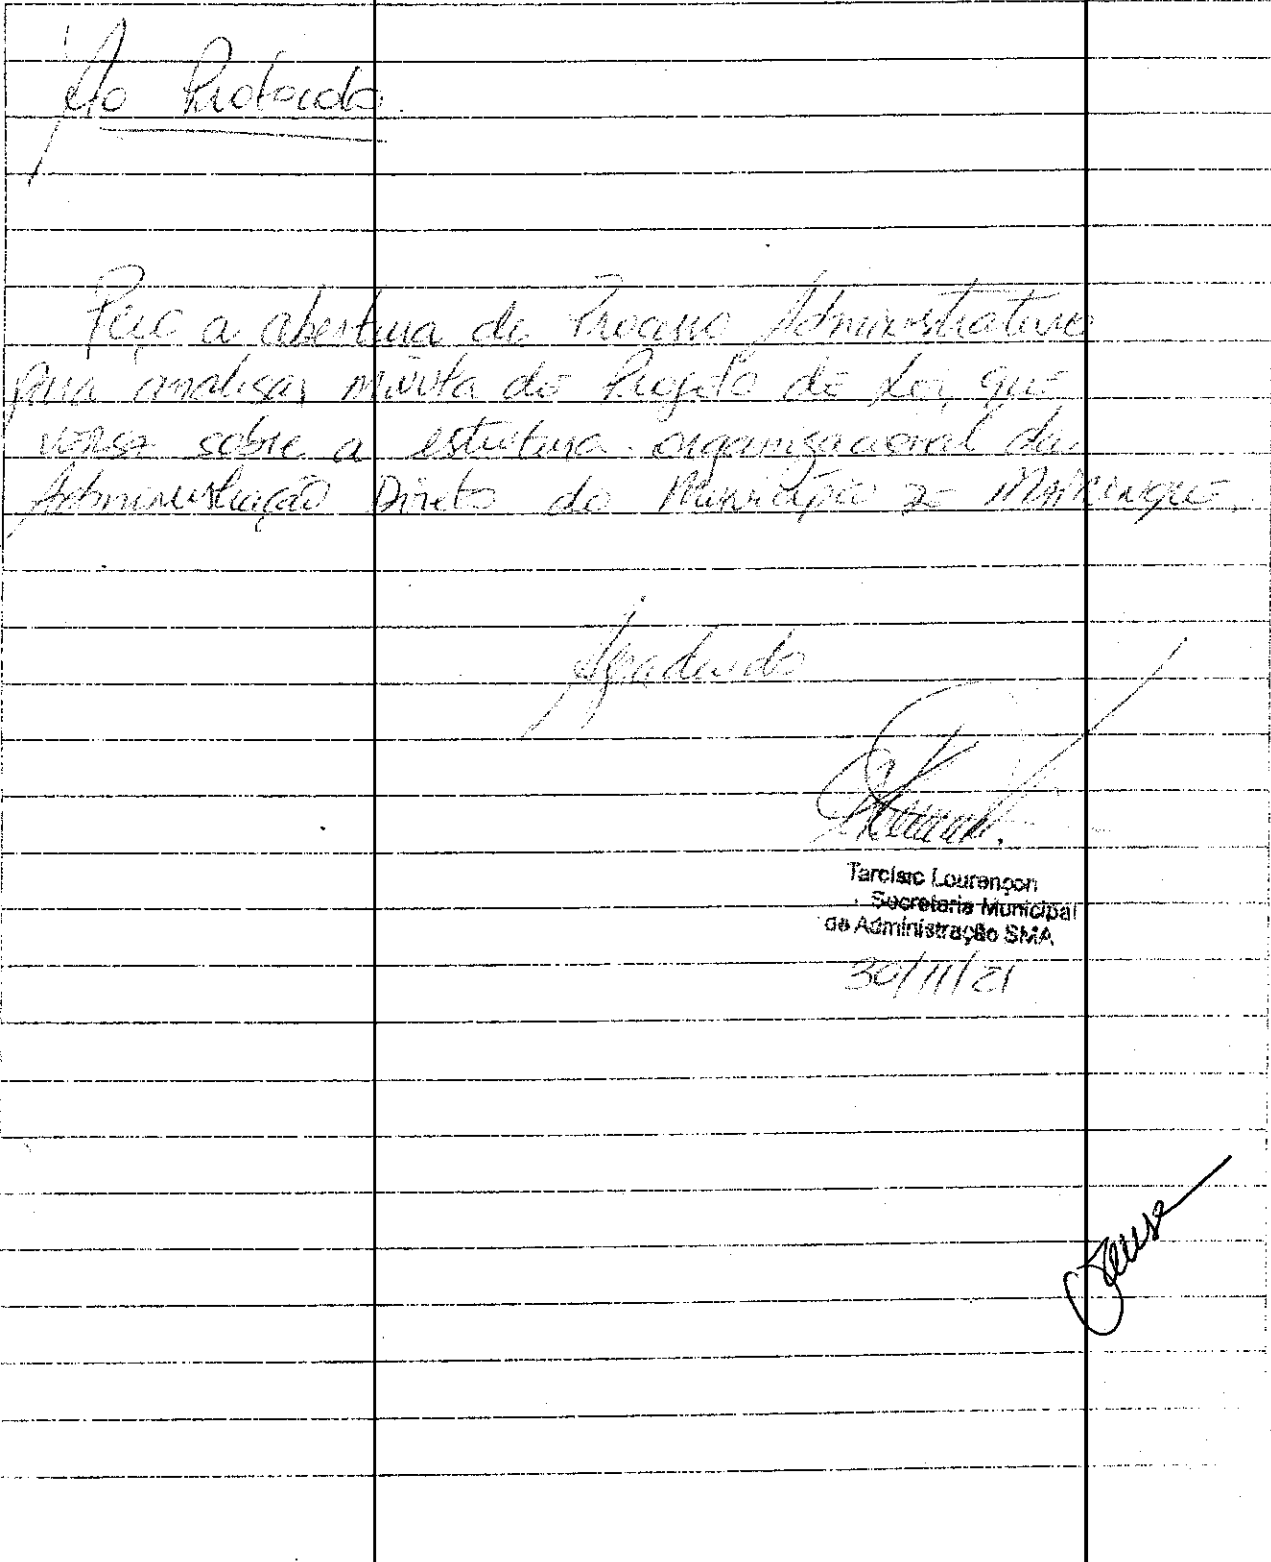 Ao Protocolo.
Peço a abertura de Processo Administrativo
para analisar minuta do Projeto de Lei, que
versa sobre a estrutura organizacional da
Administração Direta do Município de MAIRINQUE.
Agradecido
Tarcisio Lourençon
Secretario Municipal
de Administração SMA
30/11/21